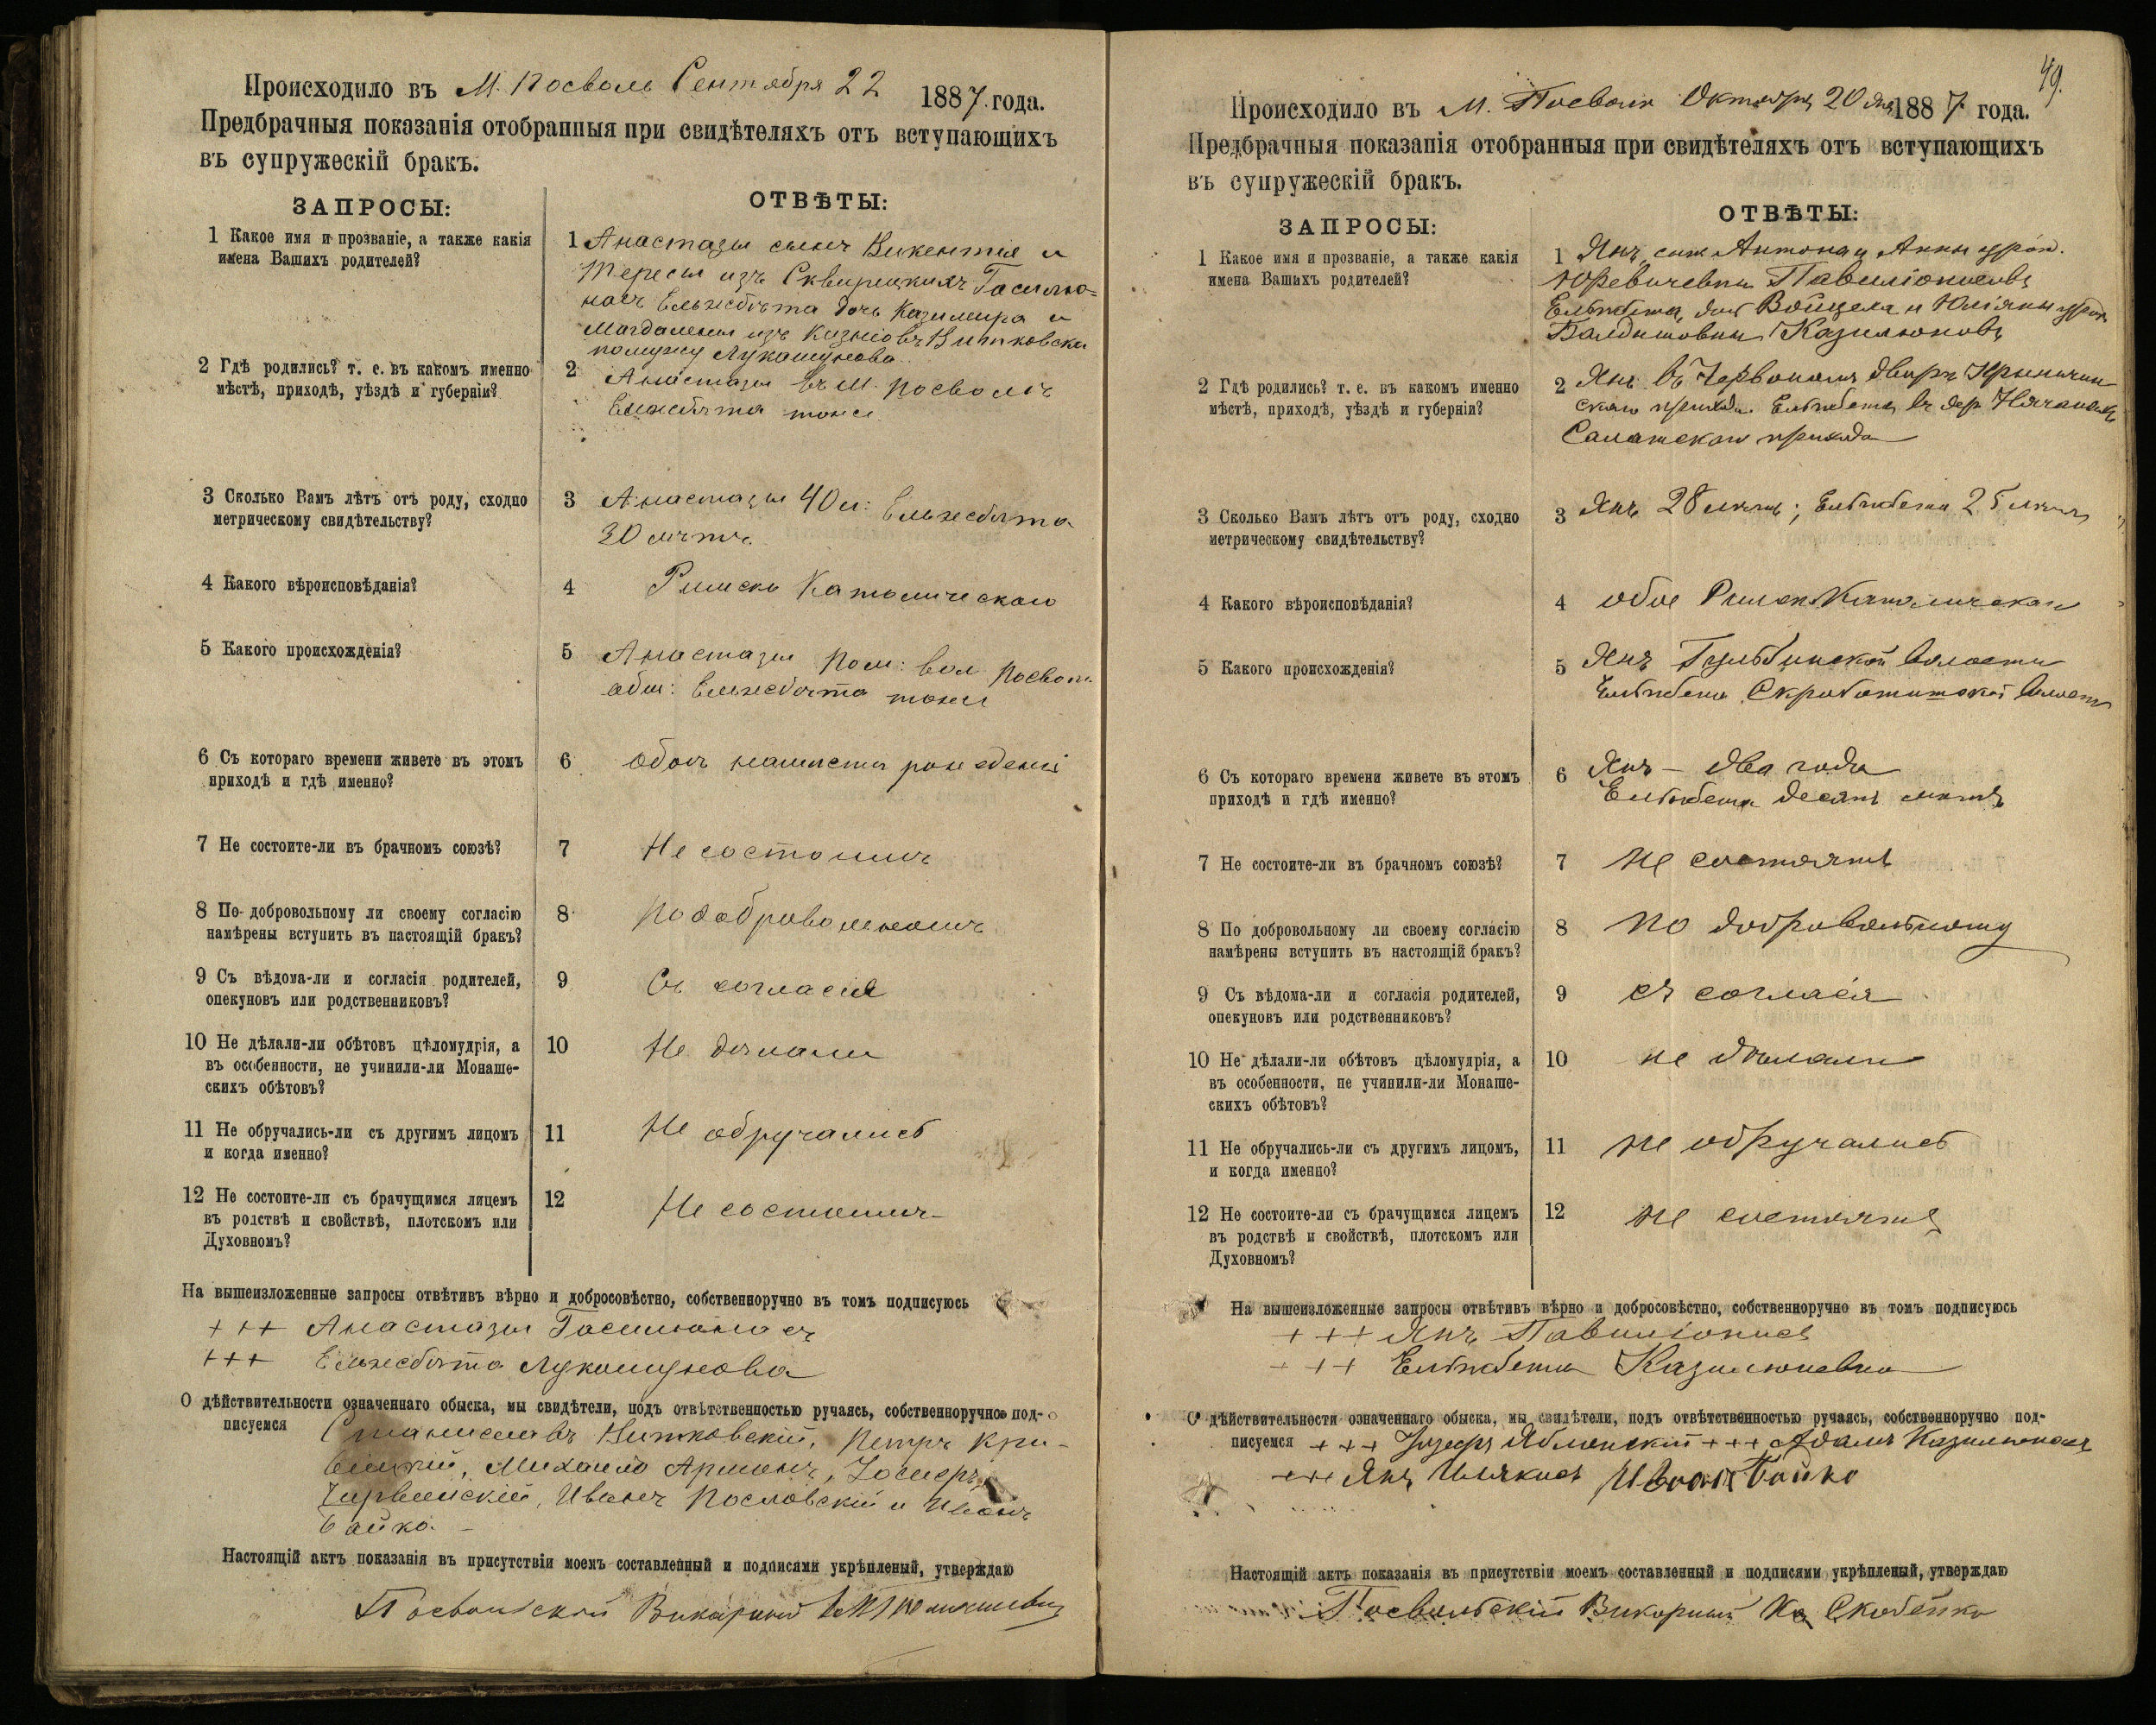 Происходило въ М. Посволь Сентября 22 1887 года.
Предбрачныя показанія отобранныя при свидѣтеляхъ отъ вступающихъ
въ супружескій бракъ.
ЗАПРОСЫ:
ОТВѢТЫ:
1 Какое имя и прозваніе, а также какія
имена Вашихъ родителей?
1 Анастазы сынъ Викентія и
Тересы изъ
Ельжбѣта дочь Казимира и
Магдалены изъ
по мужу Лукошунова
2 Гдѣ родились? т. е. въ какомъ именно
мѣстѣ, приходѣ, уѣздѣ и губерніи?
2 Анастазы въ М. Посволѣ
Ельжбѣта тоже
3 Сколько Вамъ лѣтъ отъ роду, сходно
метрическому свидѣтельству?
3 Анастазы 40 л: Ельжбѣта
30 лѣтъ
4 Какого вѣроисповѣданія?
4 Римско Католическаго
5 Какого происхожденія?
5 Анастазы
Ельжбѣта тоже
6 Съ котораго времени живете въ этомъ
приходѣ и гдѣ именно?
6
7 Не состоите-ли въ брачномъ союзѣ?
7 Не состоимъ
8 По добровольному ли своему согласію
намѣрены вступить въ настоящій бракъ?
8 По добровольному
9 Съ вѣдома-ли и согласія родителей,
опекуновъ или родственниковъ?
9 Съ согласія
10 Не дѣлали-ли обѣтовъ цѣломудрія, а
въ особенности, не учинили-ли Монаше-
скихъ обѣтовъ?
10 Не дѣлали
11 Не обручались-ли съ другимъ лицомъ
и когда именно?
11 Не обручались
12 Не состоите-ли съ брачущимся лицемъ
въ родствѣ и свойствѣ, плотскомъ или
Духовномъ?
12 Не состоимъ
На вышеизложенные запросы отвѣтивъ вѣрно и добросовѣстно, собственноручно въ томъ подписуюсь
+++ Анастазы Гасилюнасъ
+++ Ельжбѣта Лукошунова
О дѣйствительности означеннаго обыска, мы свидѣтели, подъ отвѣтственностью ручаясь, собственноручно под-
писуемся Станиславъ Витковскій, Петръ
Михаило Іосифъ
Иванъ Пословскій и Иванъ
Байко
Настоящій актъ показанія въ присутствіи моемъ составленный и подписями укрѣпленый, утверждаю
Посвольскій Викарный
49.
Происходило въ М. Посволь Октября 20 дня 1887 года.
Предбрачныя показанія отобранныя при свидѣтеляхъ отъ вступающихъ
въ супружескій бракъ.
ЗАПРОСЫ:
ОТВѢТЫ:
1 Какое имя и прозваніе, а также какія
имена Вашихъ родителей?
1 Янъ, сынъ Антона и Анны урож.
Юревичевны
Ельжбета, дочь и Юліаны урож.
Казилюновъ
2 Гдѣ родились? т. е. въ какомъ именно
мѣстѣ, приходѣ, уѣздѣ и губерніи?
2 Янъ въ дворѣ
скаго прихода. Ельжбета въ дер.
Салатскаго прихода
3 Сколько Вамъ лѣтъ отъ роду, сходно
метрическому свидѣтельству?
3 Янъ 28 лѣтъ; Ельжбета 25 лѣтъ
4 Какого вѣроисповѣданія?
4 обое Римск. Католическаго
5 Какого происхожденія?
5 Янъ Гульбинской волости
Ельжбета волости
6 Съ котораго времени живете въ этомъ
приходѣ и гдѣ именно?
6 Янъ – два года
Ельжбета десять лѣтъ
7 Не состоите-ли въ брачномъ союзѣ?
7 не состоятъ
8 По добровольному ли своему согласію
намѣрены вступить въ настоящій бракъ?
8 по добровольному
9 Съ вѣдома-ли и согласія родителей,
опекуновъ или родственниковъ?
9 съ согласія
10 Не дѣлали-ли обѣтовъ цѣломудрія, а
въ особенности, не учинили-ли Монаше-
скихъ обѣтовъ?
10 не дѣлали
11 Не обручались-ли съ другимъ лицомъ,
и когда именно?
11 не обручались
12 Не состоите-ли съ брачущимся лицемъ
въ родствѣ и свойствѣ, плотскомъ или
Духовномъ?
12 не состоятъ
На вышеизложенные запросы отвѣтивъ вѣрно и добросовѣстно, собственноручно въ томъ подписуюсь
+++ Янъ Павиліонисъ
+++ Ельжбета Казилюневна
О дѣйствительности означеннаго обыска, мы свидѣтели, подъ отвѣтственностью ручаясь, собственноручно под-
писуемся +++ Іозефъ Яблонскій +++ Адамъ Казилюнасъ
+++ Янъ Иванъ Байко
Настоящій актъ показанія въ присутствіи моемъ составленный и подписями укрѣпленый, утверждаю
Посвольскій Викарный Кс Скобейко